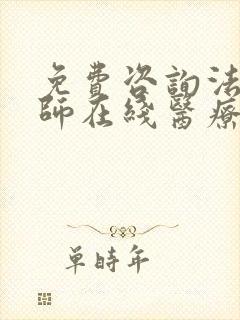 免費咨詢法
師在綫醫療
單時年